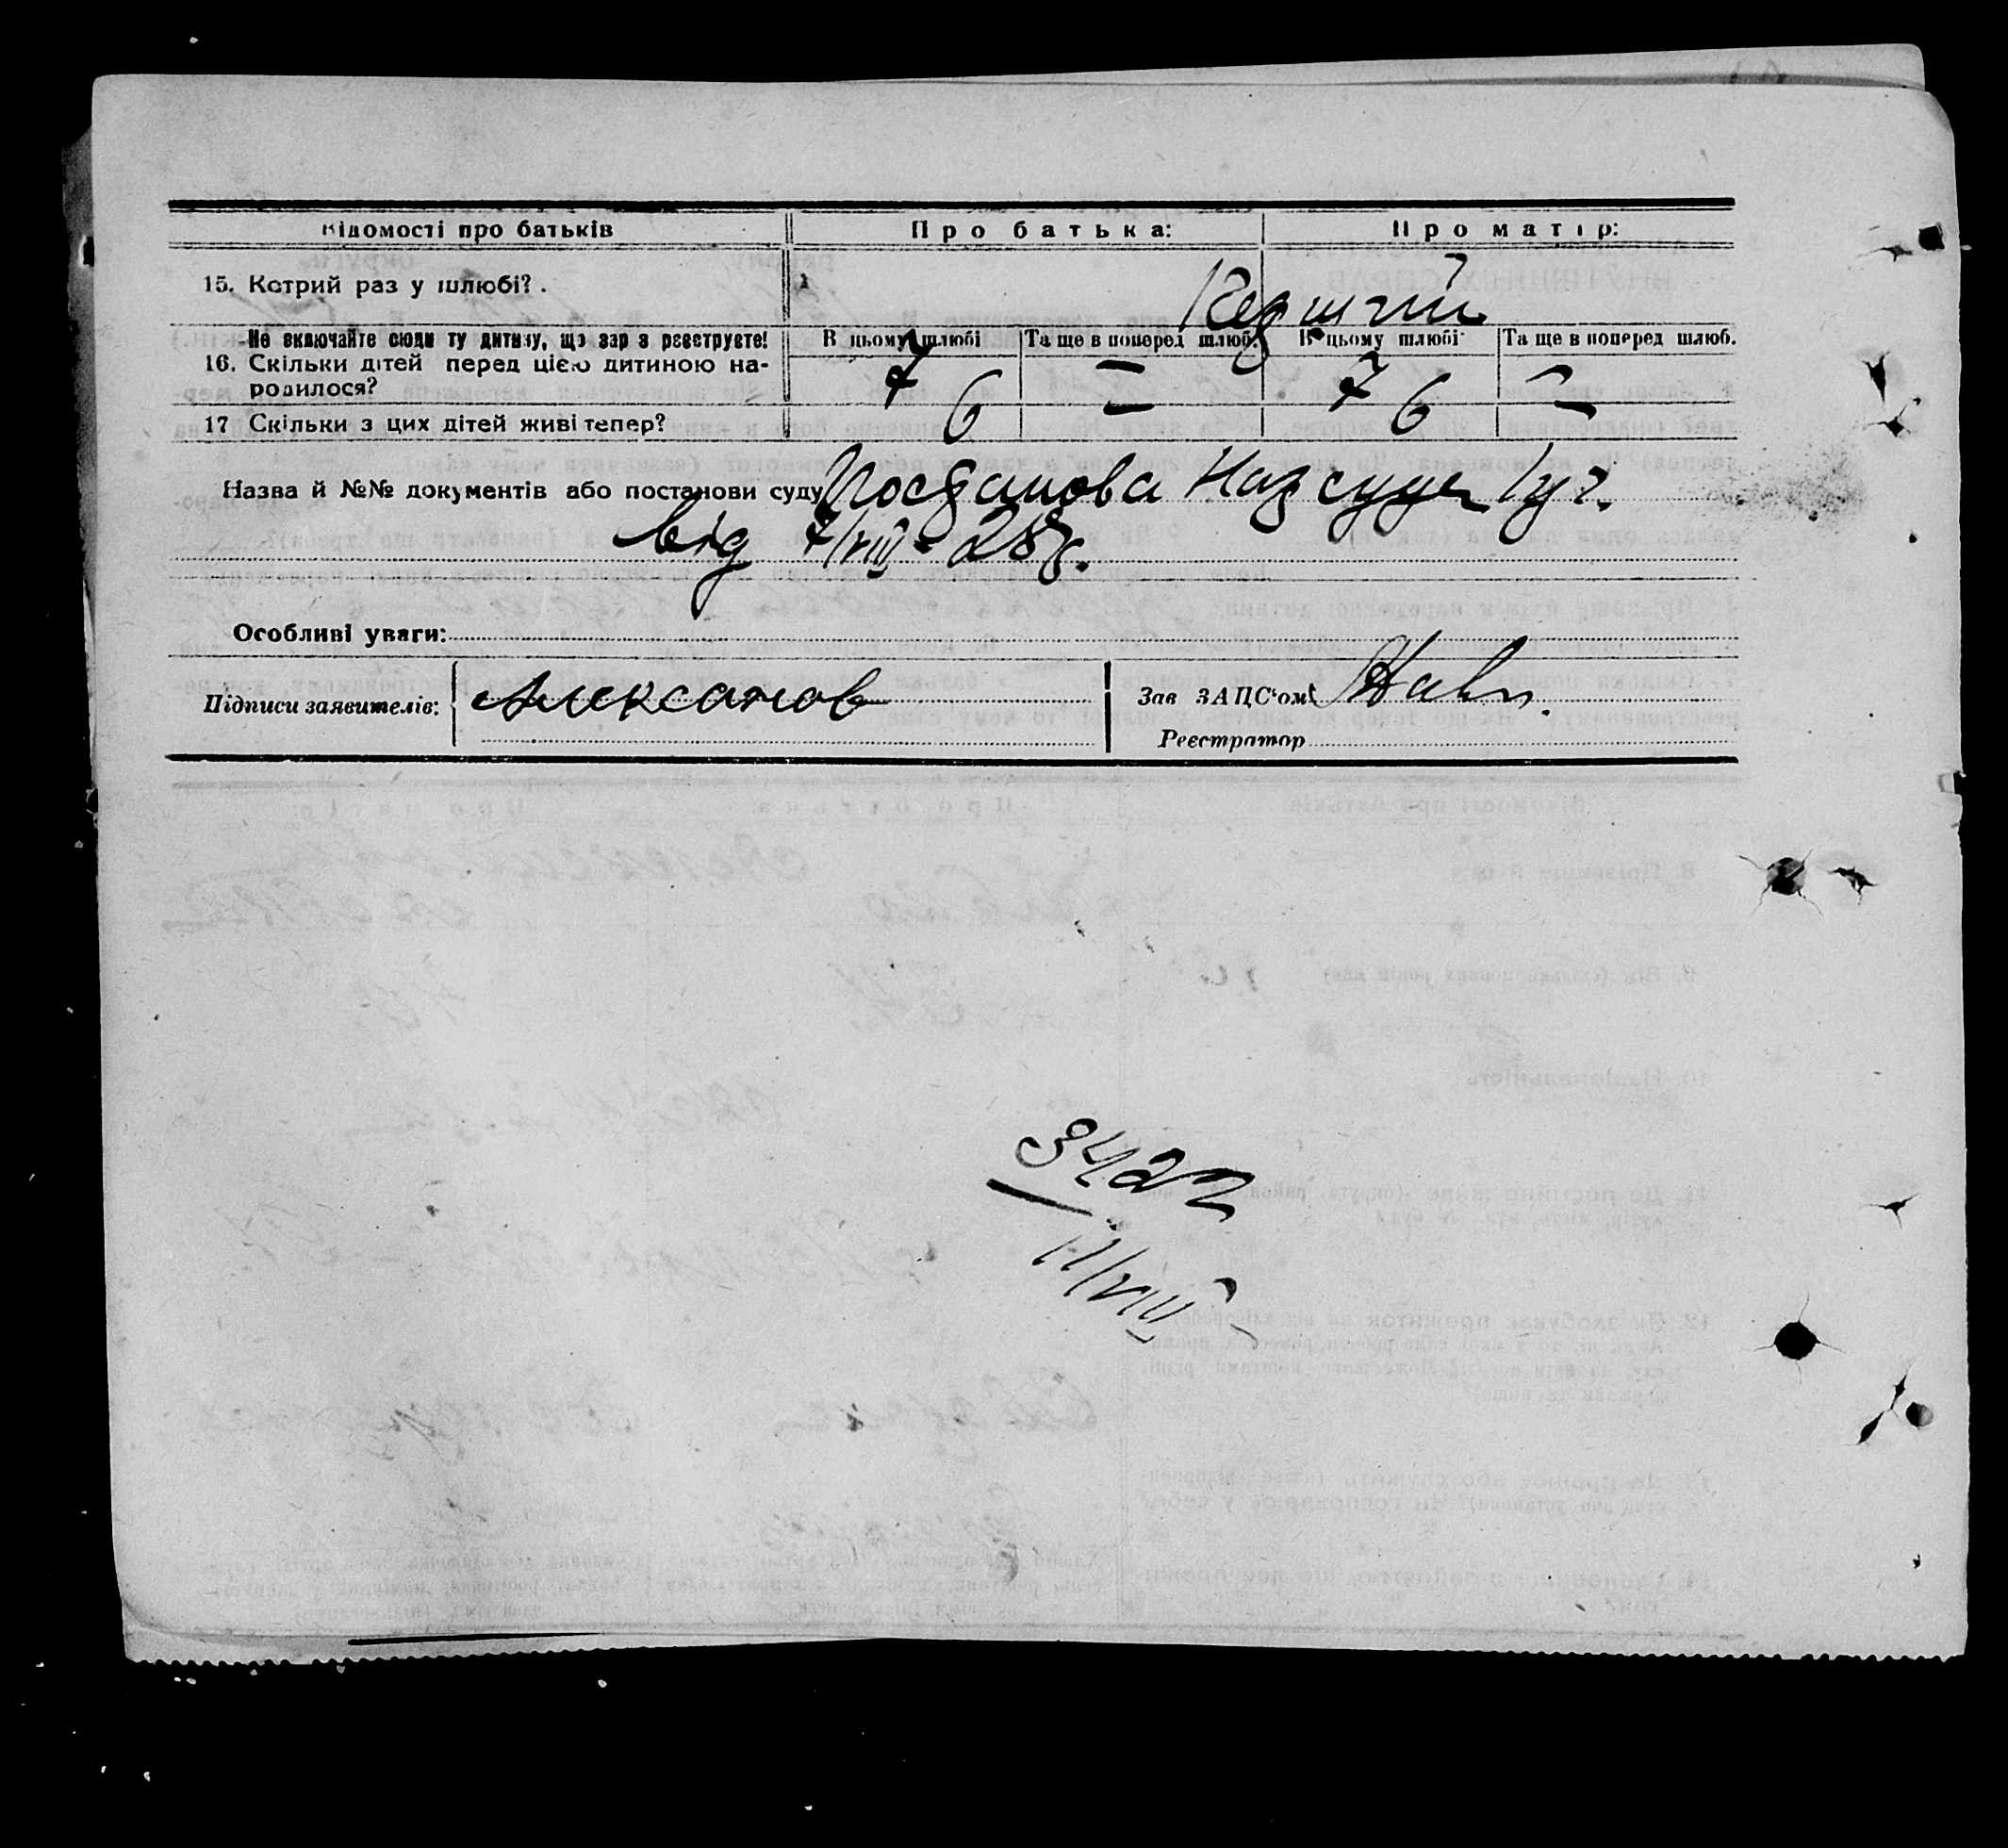 Відомості про батьків Про батька: Про матір:
15. Котрий раз у шлюбі? .
Не включайте сюди ту дитину, що зараз реєструєте! В цьому шлюбі Та ще в поперед шлюб. В цьому шлюбі Та ще в поперед шлюб.
16. Скільки дітей перед цією дитиною на- 7 — 7 —
родилося?
17 Скільки з цих дітей живі тепер? 6 — 6 —
Назва й №№ документів або постанови суду Постанова Нарсуду
від 7/VIII - 28р.
Особливі уваги:
Підписи заявителів: Алексанов Зав ЗАЦС'ом
Реєстратор
3422
11/VIII